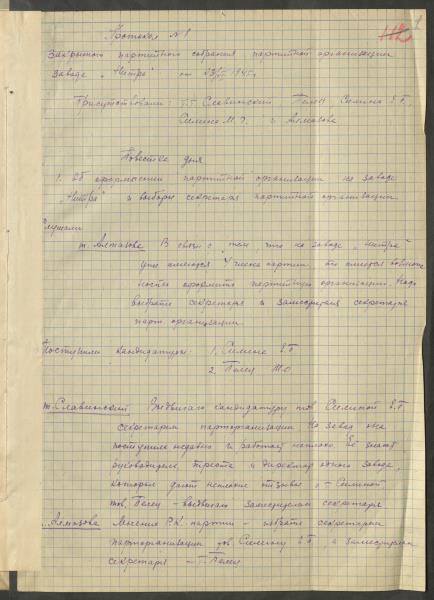 Протокол №1
Закрытого партийного собрания партийной организации
завода "Нитра" от 1945 г.
Присутствовали: т.т. Славинский, Палей, Силина Е.Г.,
Силина М.Г. и Алмазова
Повестка дня
1. Об оформлении партийной организации на заводе
"Нитра" и выборы секретаря партийной организации.
Слушали
т. Алмазова В связи с тем, что на заводе "Нитра"
уже имеются 4 члена партии,
оформить партийную организацию. Надо
выбрать секретаря и заместителя секретаря
парт. организации.
Поступили кандидатуры: 1. Силина Е.Г.
2. Палей М.О
т. Славинский Выдвигаю кандидатуру тов Силиной Е.Г.
секретарем парторганизации. На завод она
поступила недавно и работает неплохо. Ее знают
руководители треста и директор завода,
которые дают неплохие отзывы о т Силиной
тов. Палей - выдвигаю заместителем секретаря
Алмазова Мнение Р.К. партии - избрать секретарем
парторганизации тов Силину Е.Г., а заместителем
секретаря - т. Палей